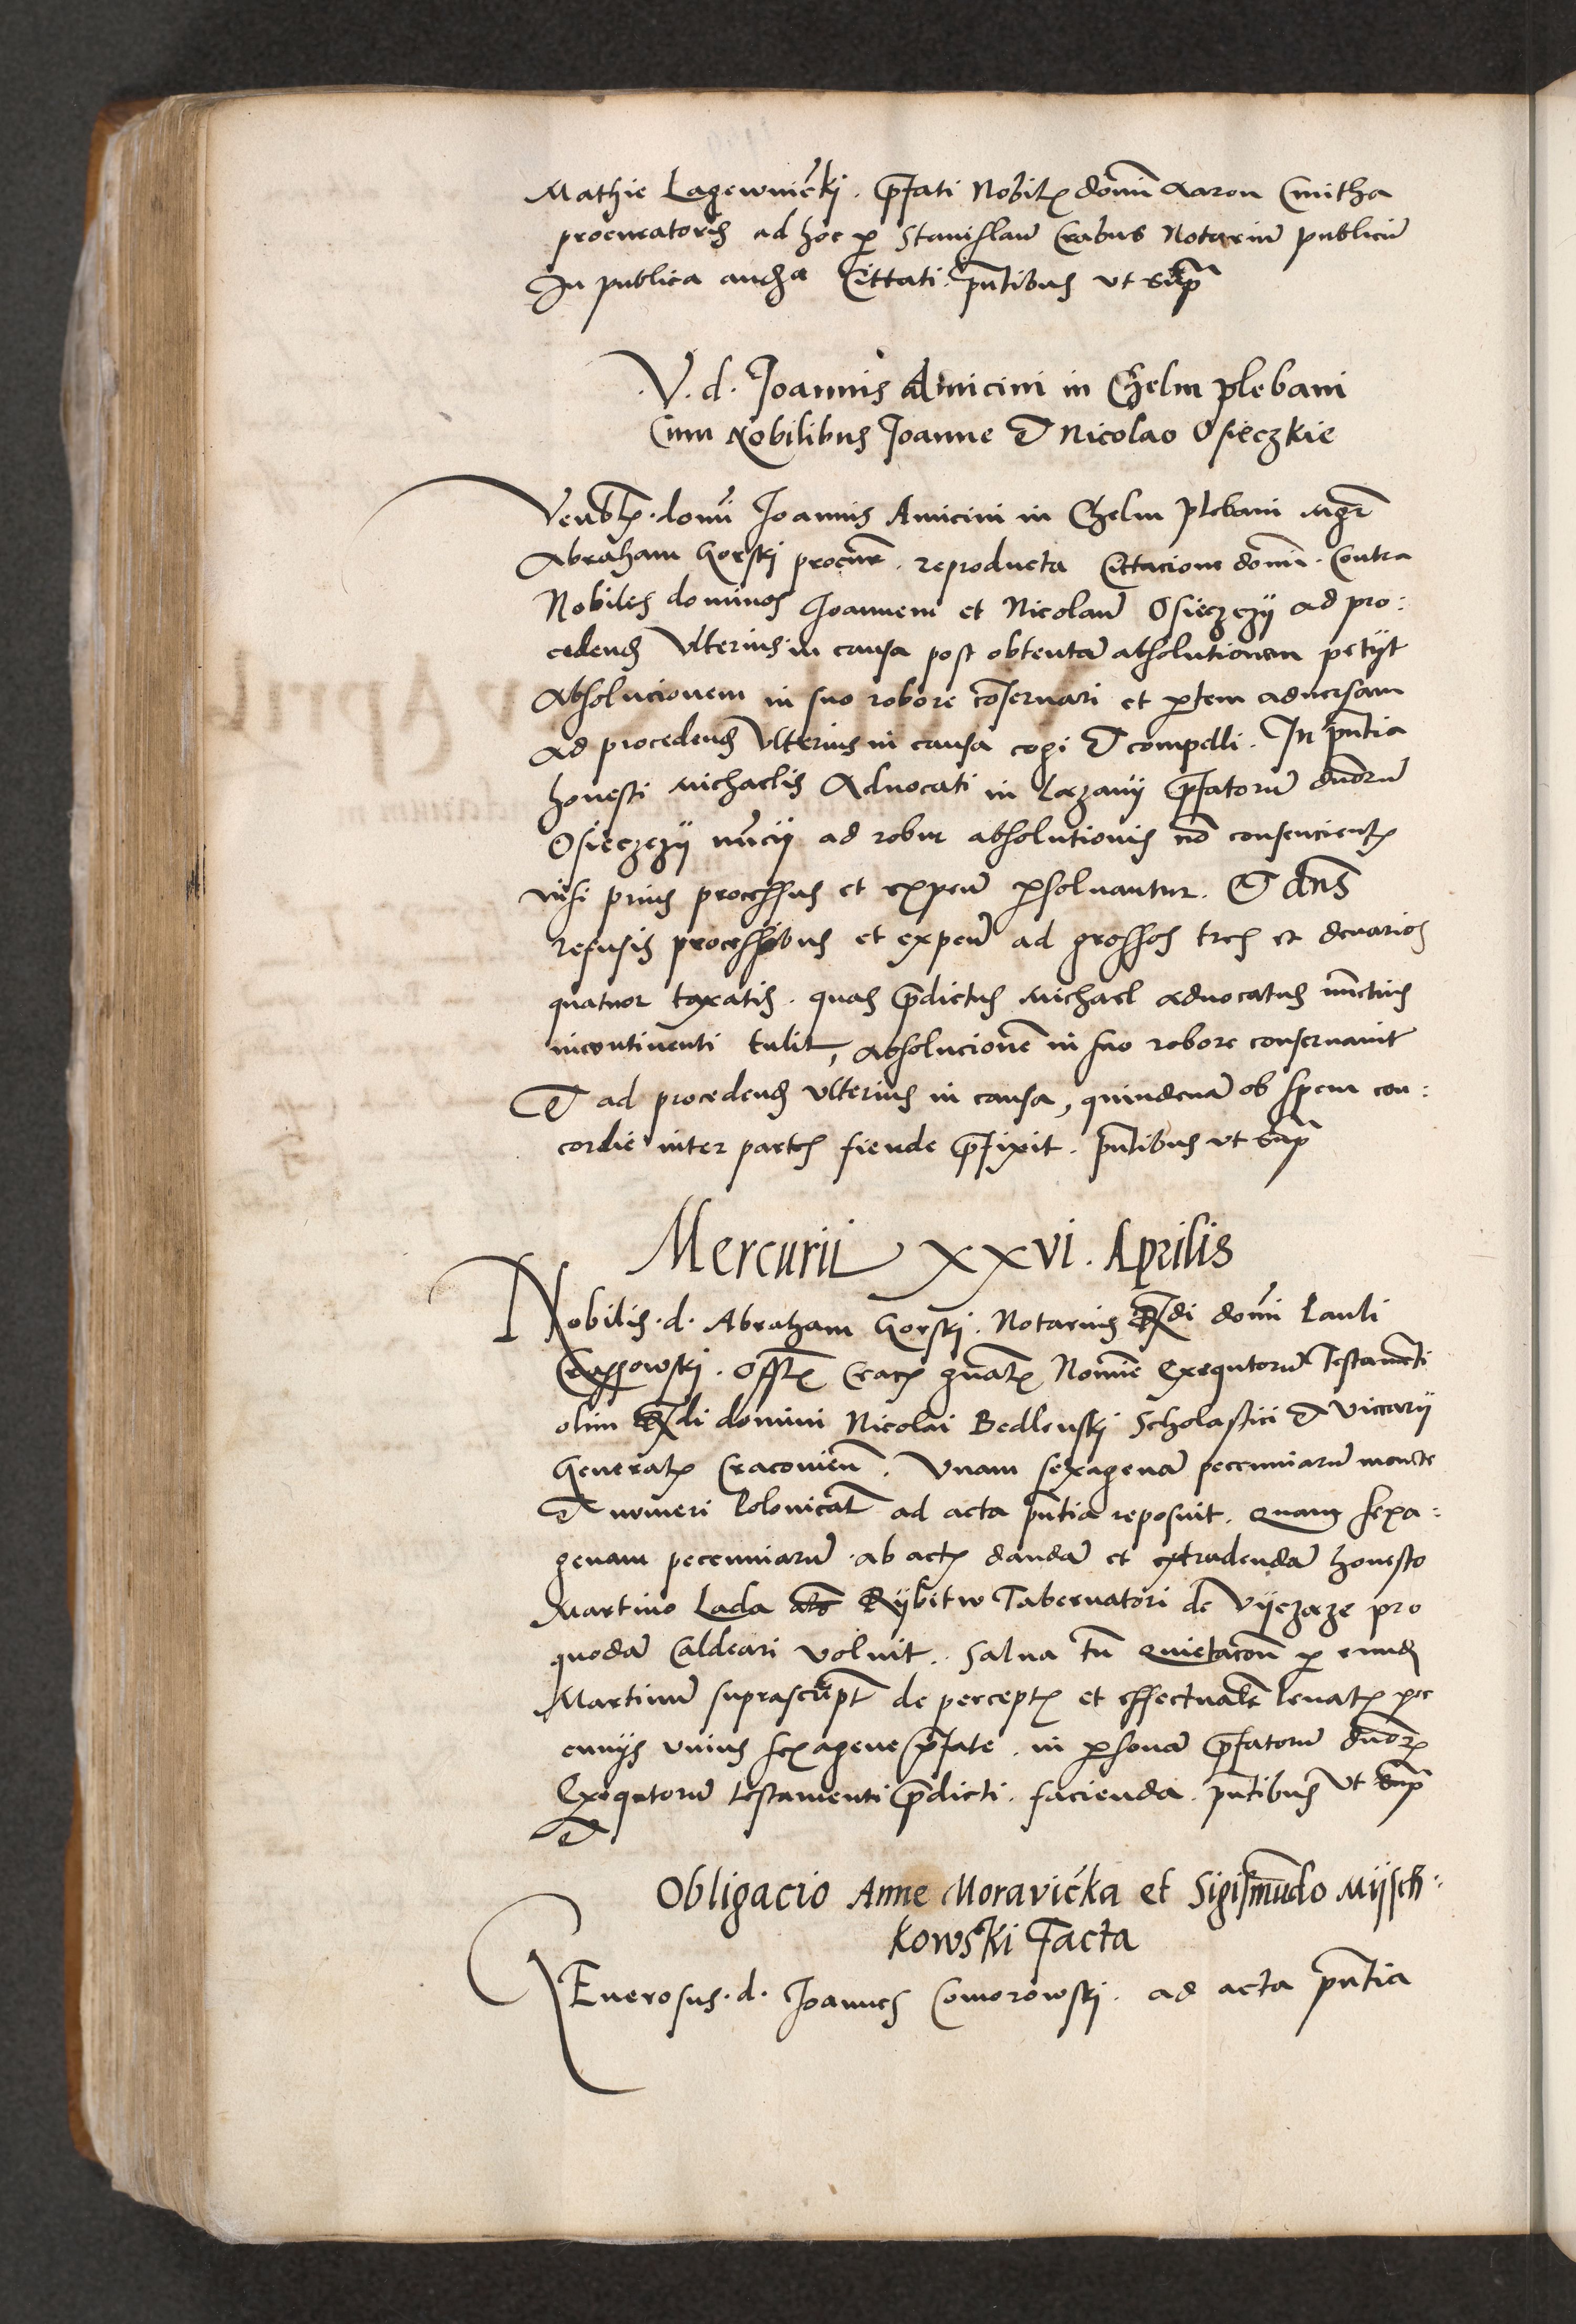 Mathie Lagewniczki . p̄fati Nobilꝭ domi͞ Aaron Cmitha
procuratoris ad hoc ꝑ Stanislau͞ Crabus Notariu͞ publicu͞
In publica audꝫa Cittati . pn͞tibus vt sup͞
V. d. Joannis Amicini in Chelm plebani
Cum Nobilibus Joanne & Nicolao Osieczkie
Venblꝭ . domi͞ Joannis Amicini in Chelm Plebani Mgr͞
Abraham Gorski procur͞ . reproducta Cittacione domi͞ . Contra
Nobiles dominos Joannem et Nicolau͞ Osieczczij ad pro:
cedend͞ Vlterius in causa post obtenta͞ absolutionem petijt
Absolucionem in suo robore co͞seruari et ꝑtem aduersam
ad procedend͞ Vlterius in causa cogi & compelli . In pn͞tia
honesti Michaelis Aduocati in Lazanij p̄fatoru͞ dn͞oru͞
Osieczczij nu͞cij ad robur absolutionis no͞ consencientꝭ
nisi prius processus et expen͞ ꝑsoluantur . Et dn͞s
refusis processibus et expen͞ ad grossos tres et denarios
quatuor taxatis . quas p̄dictus Michael aduocatus nu͞ctius
incontinenti tulit, absolucione͞ in suo robore conseruauit
Et ad procedend͞ vlterius in causa, quindena͞ ob spem con:
cordie inter partes fiende p̄fixit . pn͞tibus vt sup͞
Mercurii xxvi . Aprilis
Nobilis . d . Abraham Gorski . Notarius R͞di domi͞ Pauli
offꝭ Cracꝭ gn͞alꝭ Nomi͞e Exequtoru͞ Testame͞ti
olim R͞di domini Nicolai Bedlenski Scholastici & Viccarij
Generalꝭ Cracovien͞ . Vnam sexagena͞ peccuniaru͞ monete
& numeri Polonical͞ ad acta pn͞tia reposuit . quam sexa:
genam peccuniaru͞ . ab actꝭ danda͞ et extradenda͞ honesto
Martino Lada als͞ Rybitw Tabernatori de Vijezaze pro
quoda͞ Caldeari voluit . Salua tn͞ Quietaco͞n ꝑ eund͞
Martinu͞ suprascript͞ de perceptꝭ et effectualr͞ leuatꝭ pec
cunijs vnius sexagene p̄fate . in ꝑsona͞ p̄fatoru͞ dn͞orꝭ
Exequtoru͞ testamenti p̄dicti . facienda . pn͞tibus vt sup͞
&
Obligacio Anne Moraviczka et Sigismu͞do Mijsch:
kowski Facta
GEnerosus . d . Joannes Comorowski . ad acta pn͞tia